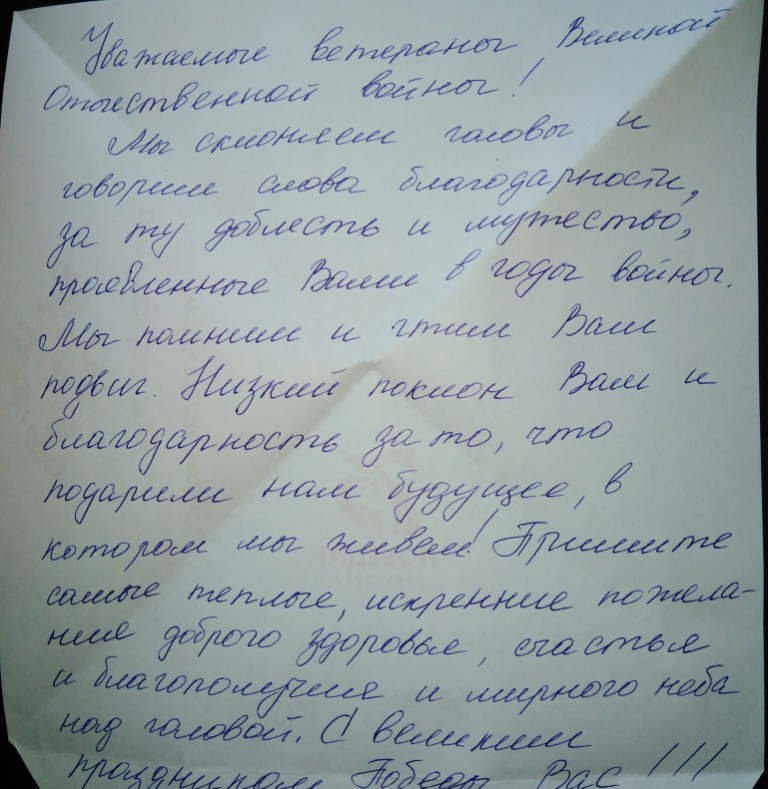 Уважаемые ветераны Великой
Отечественной войны!
Мы склоняем головы и
говорим слова благодарности,
за ту доблесть и мужество,
проявленные Вами в годы войны.
Мы помним и чтим Ваш
подвиг. Низкий поклон Вам и
благодарность за то, что
подарили нам будущее, в
котором мы живем! Примите
самые теплые, искренние пожела-
ния доброго здоровья, счастья
и благополучия и мирного неба
над головой. С великим
праздником Победы Вас!!!